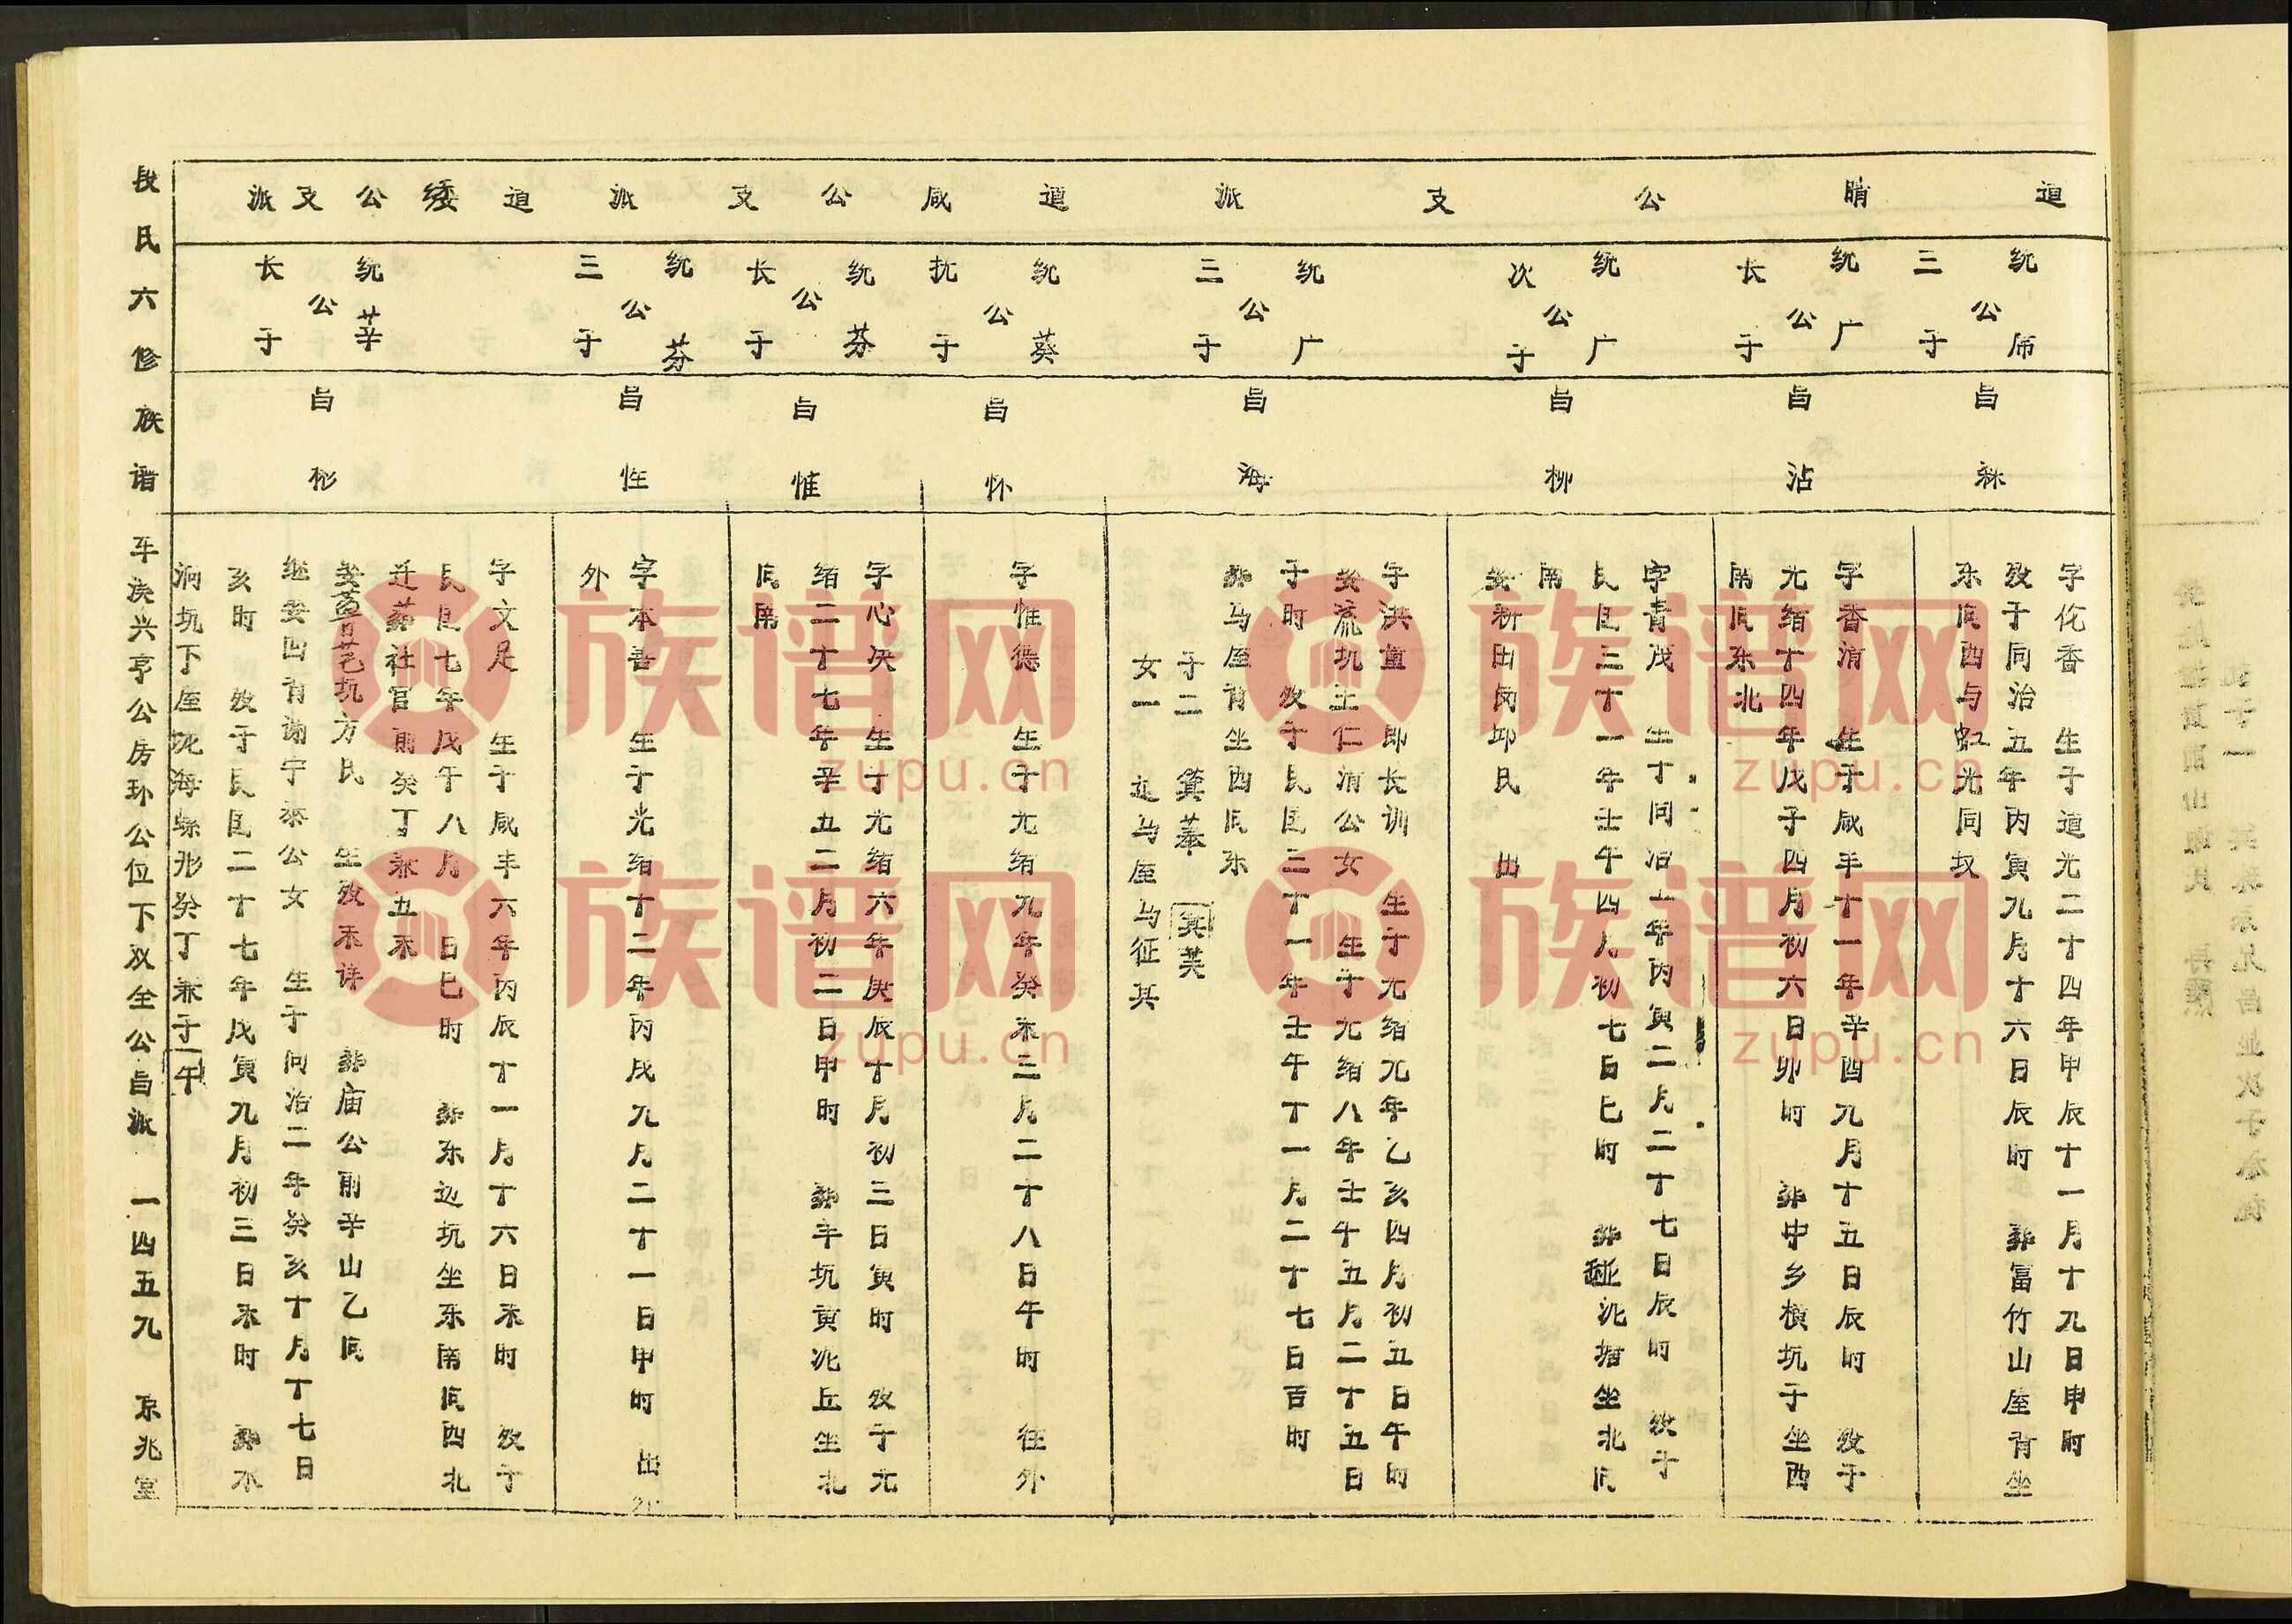 道晴公支派
道咸公支派
道绥公支派
统师公三子
昌林
字伦香 生于道光二十四年甲辰十一月十九日申时
殁于同治五年丙寅九月十六日辰时 葬富竹山屋背坐
东向西与虹光同坟
统广公长子
昌沾
字香清 生于咸丰十一年辛酉九月十五日辰时 殁于
光绪十四年戊子四月初六日卯时 葬中乡横坑子坐西
南向东北
统广公次子
昌柳
字青茂 生于同治五年丙寅二月二十七日辰时 殁于
民国三十一年壬午四月初七日巳时 葬碰泥塘坐北向
南
娶新田岗邱氏 出
统广公三子
昌海
字洪董 即长训 生于光绪元年乙亥四月初五日午时
娶流坑王仁清公女 生于光绪八年壬午五月二十五日
子时 殁于民国三十一年壬午十一月二十七日酉时
葬马屋背坐西向东
子二 箕華 箕芙
女一 适马屋马征其
统葵公抚子
昌怀
字惟德 生于光绪九年癸未三月二十八日午时 往外
统芬公长子
昌惟
字心决 生于光绪六年庚辰十月初三日寅时 殁于光
绪二十七年辛丑二月初二日申时 葬车坑黄泥丘坐北
向南
统芬公三子
昌性
字本善 生于光绪十二年丙戌九月二十一日申时 出
外
统莘公长子
昌彬
字文足 生于咸丰六年丙辰十一月十六日未时 殁于
民国七年戊午八月 日巳时 葬东边坑坐东南向西北
迁葬社官前癸丁兼丑未
娶坑方氏 生殁未详 葬庙公前辛山乙向
继娶四背谢宇泰公女 生于同治二年癸亥十月十七日
亥时 殁于民国二十七年戊寅九月初三日未时 葬水
涧坑下屋坑海螺形癸丁兼子午
段氏六修族谱 车决兴亨公房环公位下双全公昌派 一四五九 京兆堂
族谱网
zupu.cn
族谱网
zupu.cn
族谱网
zupu.cn
族谱网
zupu.cn